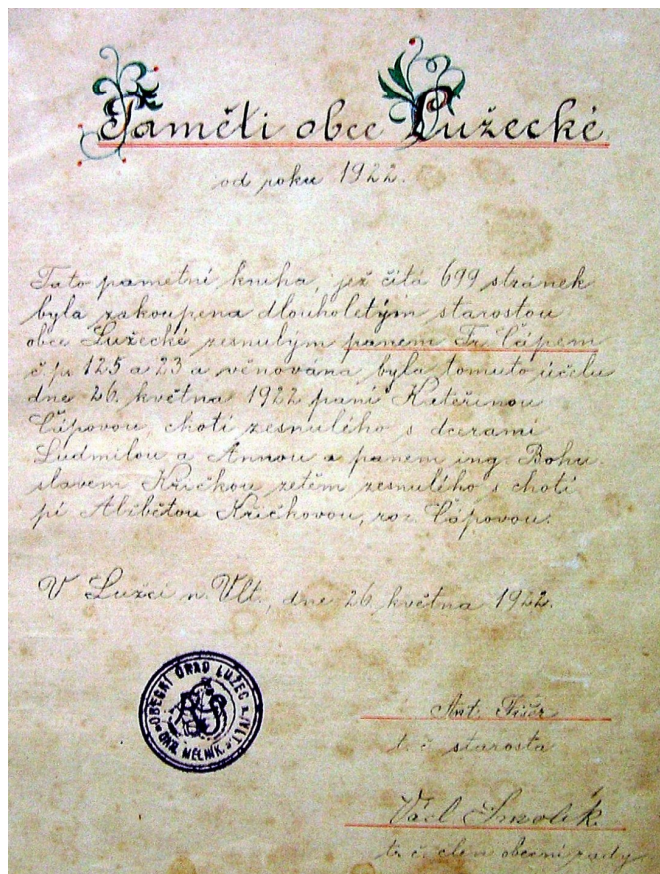 Paměti obce Lužecké
od roku 1922.
Tato pamětní kniha, jež čítá 699 stránek
byla zakoupena dlouholetým starostou
obce Lužecké zesnulým panem Fr. Čápem
č. p. 125 a 23 a věnována byla tomuto účelu
dne 26. května 1922 paní Kateřinou
Čápovou, chotí zesnulého s dcerami
Ludmilou a Annou a panem ing. Bohu-
slavem Křičkou zetěm zesnulého s chotí
pí Alžbětou Křičkovou, roz. Čápovou.
V Lužci n. Vlt., dne 26. května 1922.
OBECNÍ ÚŘAD LUŽEC n./VLT.
OKR. MĚLNÍK
Ant. Fišer
t. č. starosta
Václ Smolík
t. č. člen obecní rady